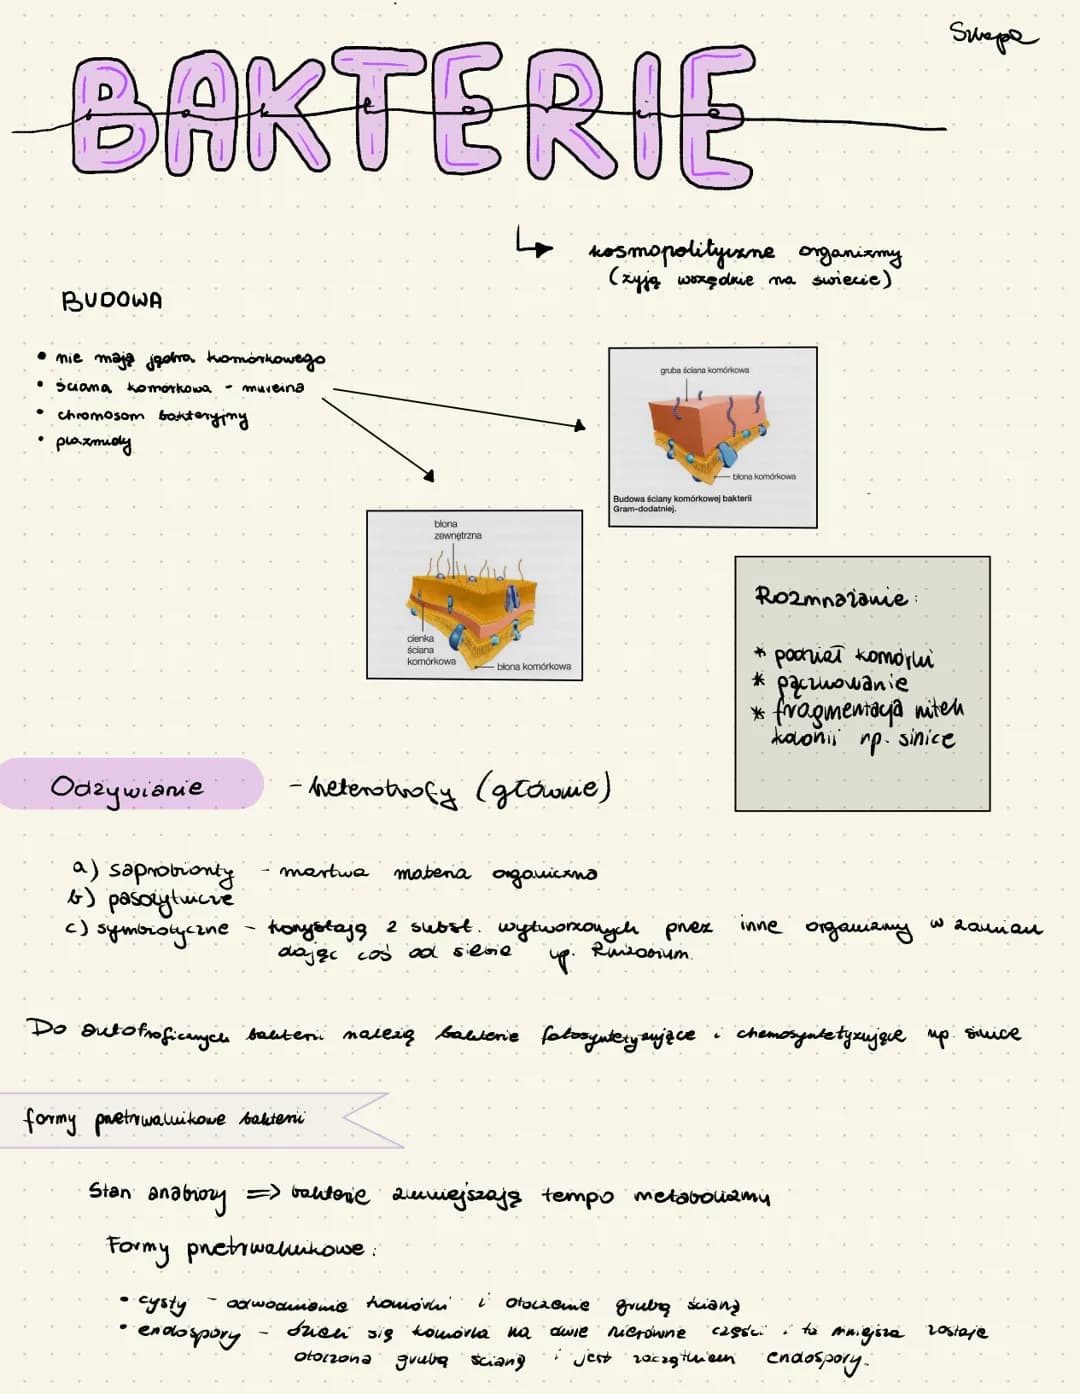 BAKTERIE
bakterie
kosmopolityczne organizmy
(żyją wszędzie na świecie)
BUDOWA
• nie mają jądra komórkowego
• ściana komórkowa - mureina
• chromosom bakteryjny
• plazmidy
gruba ściana komórkowa
błona komórkowa
Budowa ściany komórkowej bakterii
Gram-dodatniej.
błona
zewnętrzna
cienka
ściana
komórkowa
błona komórkowa
Rozmnażanie:
* podział komórki
* pączkowanie
* fragmentacja nitek
kolonii np. sinice
Odżywianie
- heterotrofy (głównie)
a) saprobionty - martwa materia organiczna
b) pasożytnicze
c) symbiotyczne - korzystają z subst. wytworzonych przez inne organizmy w zamian
dając coś od siebie np. Rhizobium.
Do autotroficznych bakterii należą bakterie fotosyntetyzujące i chemosyntetyzujące np. sinice
formy przetrwalnikowe bakterii
Stan anabiozy => bakterie zmniejszają tempo metabolizmu
Formy przetrwalnikowe:
• cysty - odwodnienie komórki i otoczenie grubą ścianą
• endospory - dzieli się komórka na dwie nierówne części i ta mniejsza zostaje
otoczona grubą ścianą i jest zaczątkiem endospory.